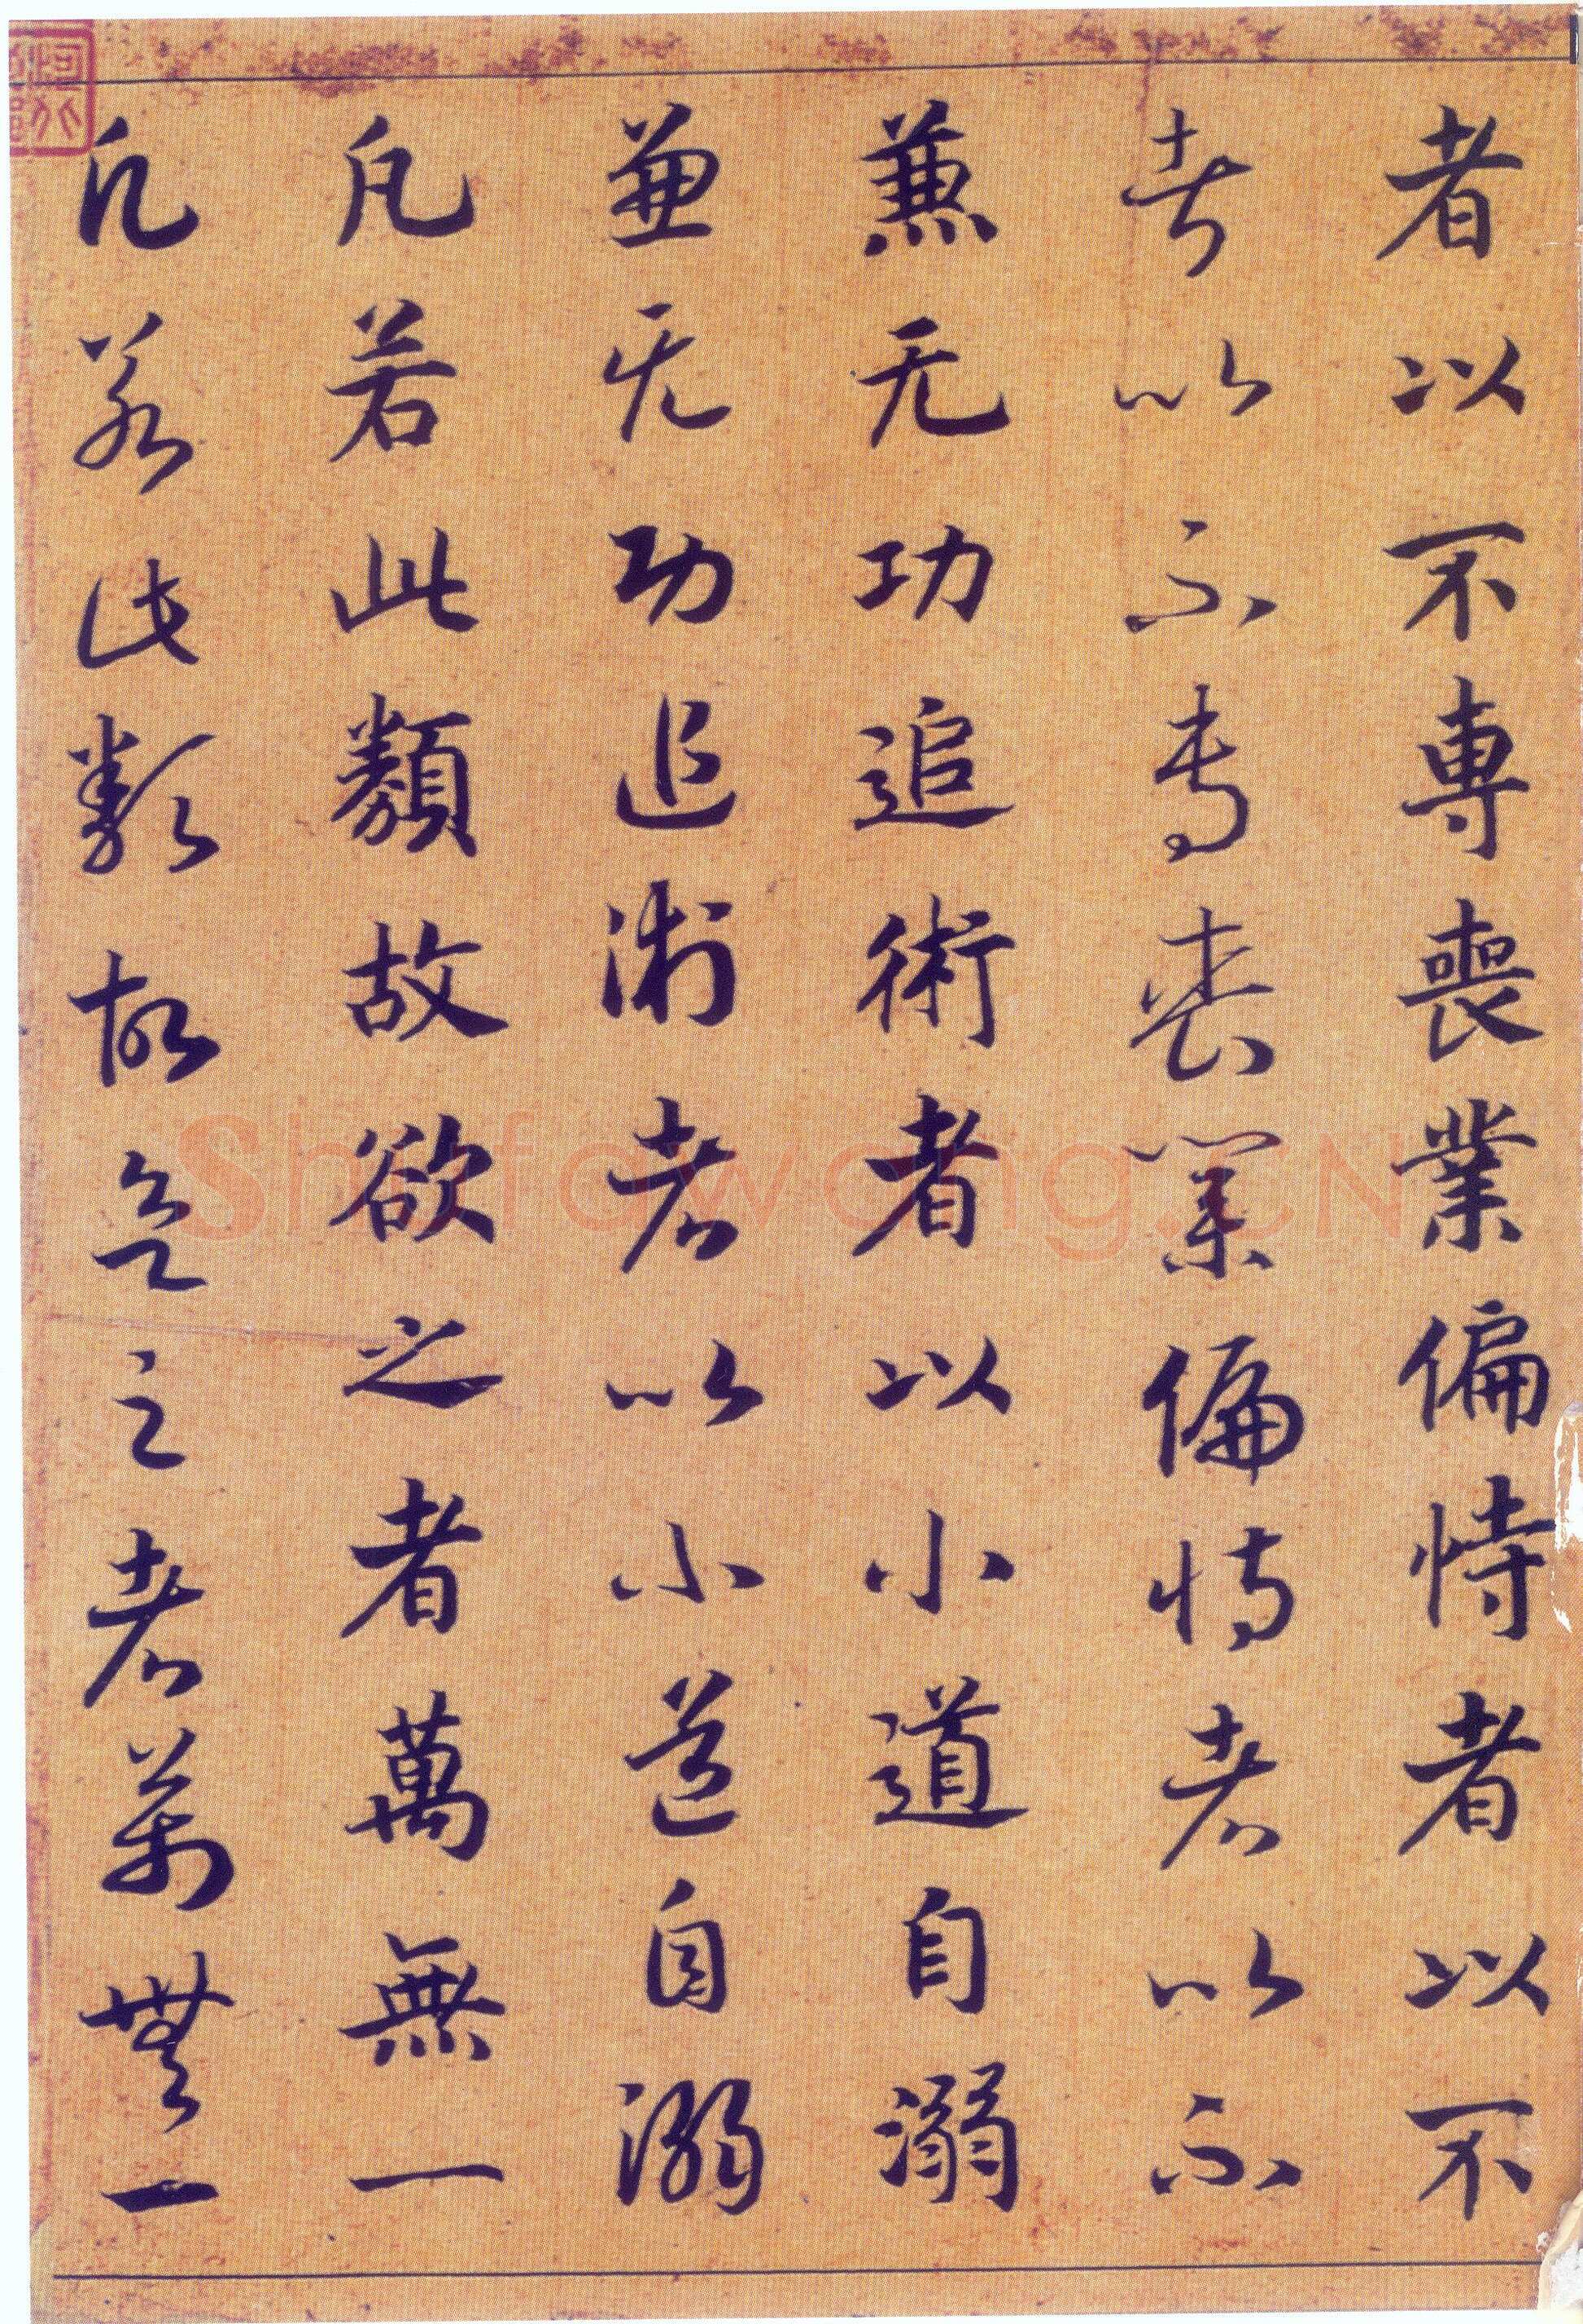 者以不專喪業偏恃者以不
者以不專喪業偏恃者以不
兼无功追術者以小道自溺
兼无功追術者以小道自溺
凡若此類故欲之者萬無一
凡若此類故欲之者萬無一
Shufawang.CN